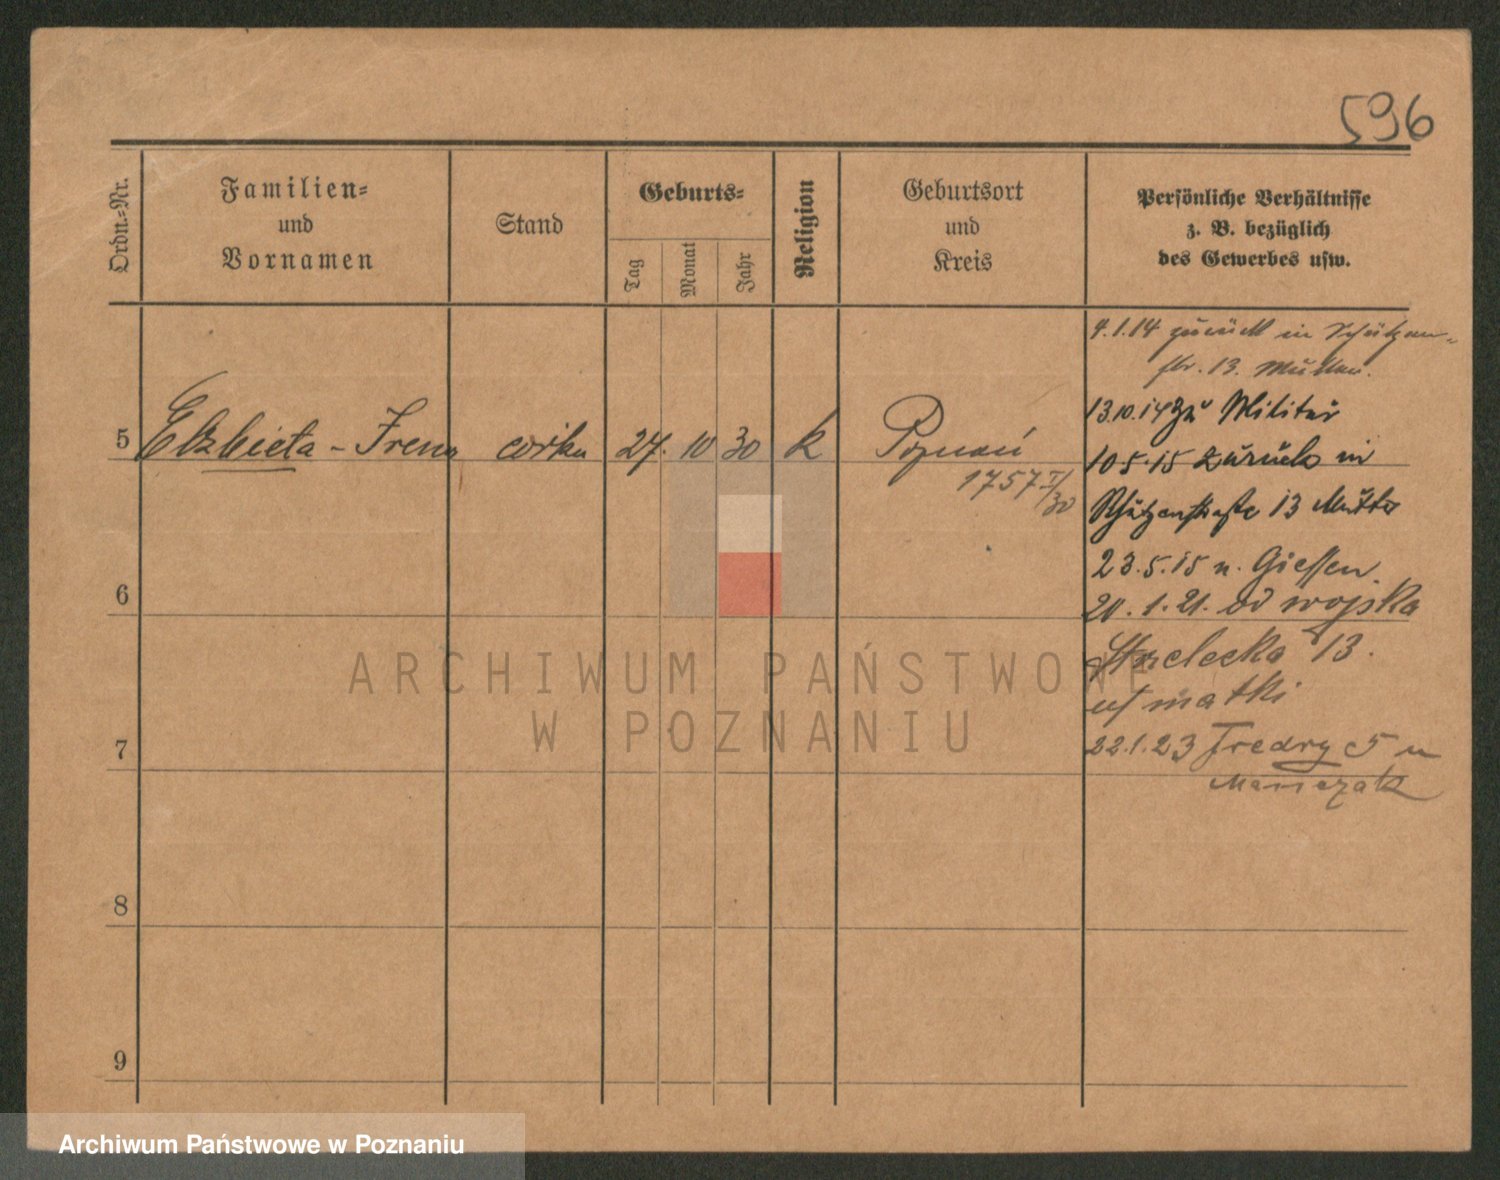 596
Ordn.-Nr.
Familien-
und
Vornamen
Stand
Geburts-
Tag
Monat
Jahr
Religion
Geburtsort
und
Kreis
Persönliche Verhältnisse
z. B. bezüglich
des Gewerbes usw.
4.1.14 zurück in Schützen-
str. 13. Mutter.
13.10.14 zu Militär
5 Elżbieta - Irena córka 27. 10 30 k Poznań
1757 I/30
10.5.15 zurück in
Schützenstraße 13 Mutter
23.5.15 n. Giessen
6
20.1.21. od wojska
Strzelecka 13.
u/ matki
7
22.1.23 Fredry 5 u
8
9
ARCHIWUM PAŃSTWOWE
W POZNANIU
Archiwum Państwowe w Poznaniu